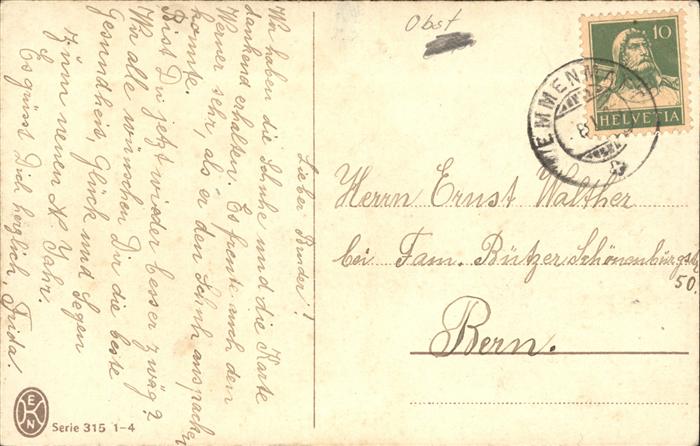 Obst
10
HELVETIA
EMMENMATT
Lieber Bruder!
Wir haben die Schuhe und die Karte
dankend erhalten. Es freute auch den
Werner sehr, als er den Schuh auspacken
konnte.
Bist Du jetzt wieder besser zwäg?
Wir alle wünschen Dir die beste
Gesundheit, Glück und Segen
zum neuen N. Jahr.
Es grüsst Dich herzlich, Frida.
Herrn Ernst Walther
bei Fam. Bützer Schönenburgstr
50.
Bern.
EKN
Serie 315 1-4